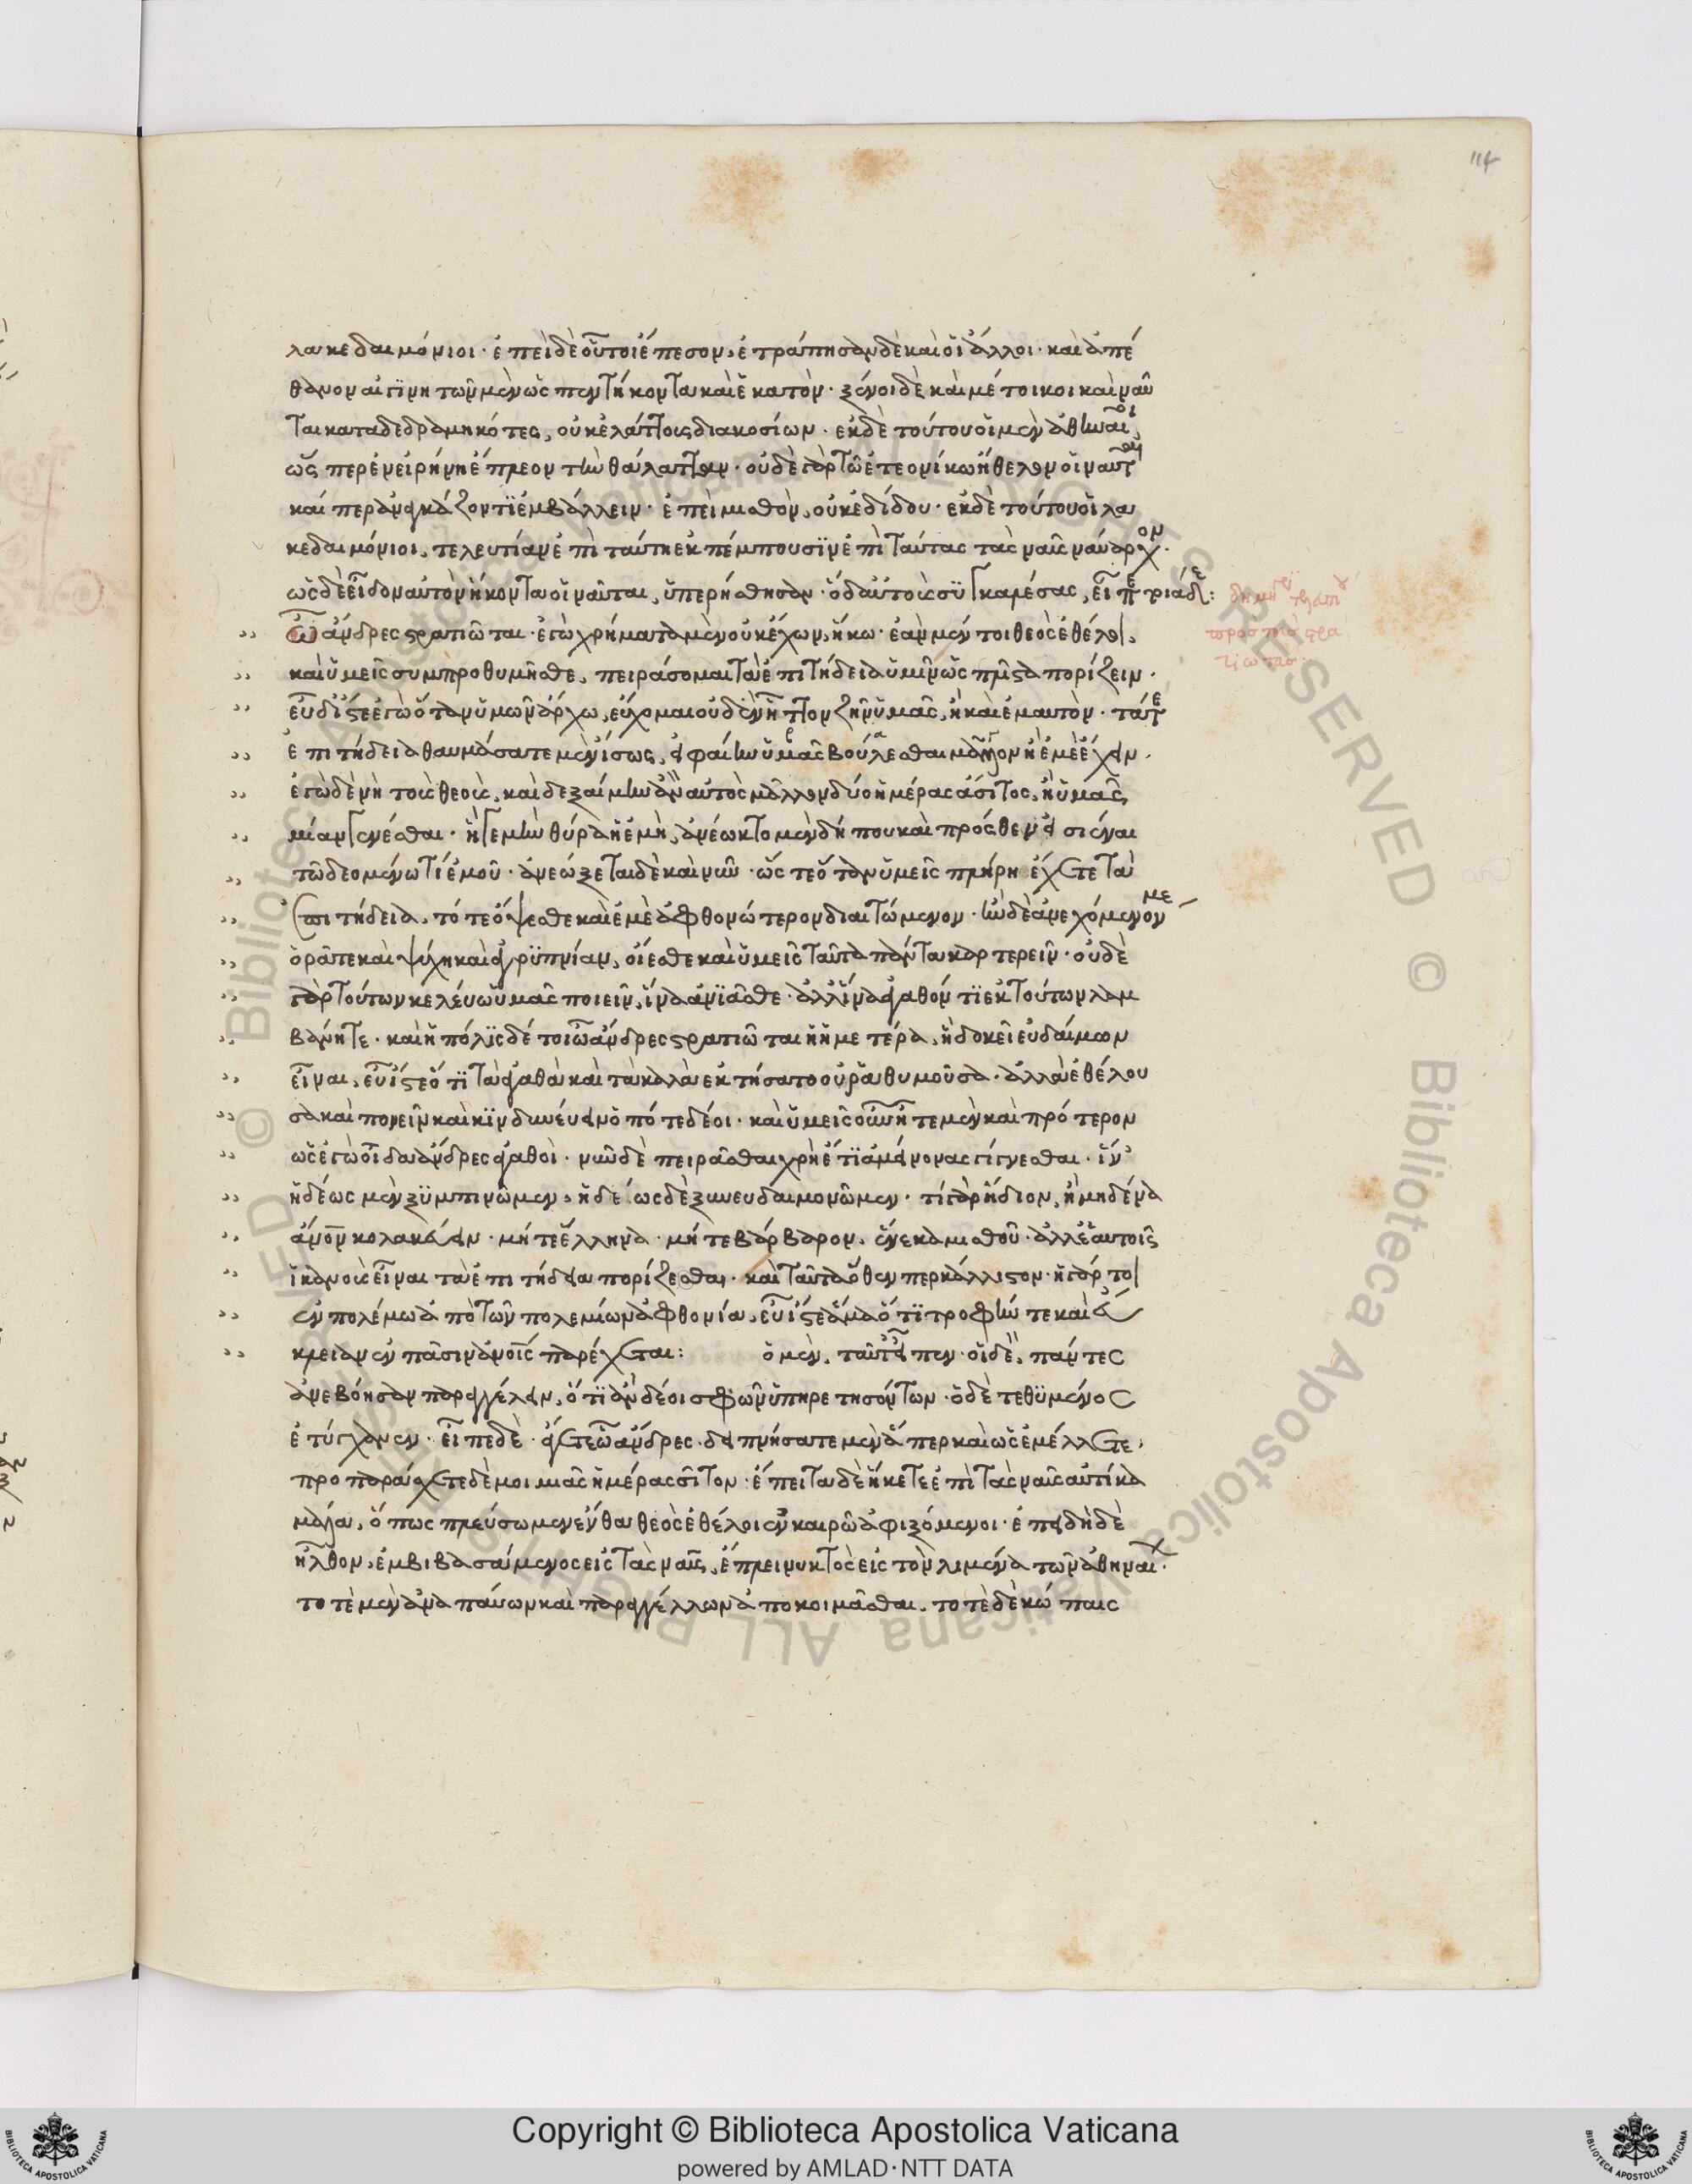 114
λακεδαιμόνιοι· ἐπεὶ δὲ οὗτοι ἔπεσον, ἐτράπησαν δὲ καὶ οἱ ἄλλοι· καὶ ἀπέ
θανον αἰγινητῶν μὲν ὡς πεντήκοντα καὶ ἑκατόν· ξένοι δὲ καὶ μέτοικοι καὶ ναῦ
ται καταδεδραμηκότες, οὐκ ἐλάττους διακοσίων· ἐκ δὲ τούτου οἱ μὲν ἀθηναῖοι,
ὥσπερ ἐν εἰρήνῃ ἔπλεον τὴν θάλατταν· οὐδὲ γὰρ τῷ ἐτεονίκῳ ἤθελον οἱ ναῦται
καίπερ ἀναγκάζοντι ἐμβάλλειν· ἐπεὶ μισθὸν οὐκ ἐδίδου· ἐκ δὲ τούτου οἱ λα
κεδαιμόνιοι, τελευτίαν ἐπὶ ταύτῃ ἐκπέμπουσιν ἐπὶ ταύτας τὰς ναῦς ναύαρχον·
ὡς δὲ εἶδον αὐτὸν ἥκοντα οἱ ναῦται, ὑπερήσθησαν· ὁ δ' αὐτοὺς συγκαλέσας, εἶπε τοιάδε:
ὦ ἄνδρες στρατιῶται· ἐγὼ χρήματα μὲν οὐκ ἔχων ἥκω· ἐὰν μέντοι θεὸς ἐθέλῃ,
καὶ ὑμεῖς συμπροθυμῆσθε, πειράσομαι τὰ ἐπιτήδεια ὑμῖν ὡς πλεῖστα πορίζειν·
εὖ δ' ἴστε ἐγὼ ὅταν ὑμῶν ἄρχω, εὔχομαι οὐδὲν ἧττον ζῆν ὑμᾶς, ἢ καὶ ἐμαυτόν· τά τε
ἐπιτήδεια θαυμάσατε μὲν ἴσως, εἰ φαίην ὑμᾶς βούλεσθαι μᾶλλον ἢ ἐμὲ ἔχειν·
ἐγὼ δὲ νὴ τοὺς θεούς, καὶ δεξαίμην ἂν αὐτὸς μᾶλλον δύο ἡμέρας ἄσιτος, ἢ ὑμᾶς
μίαν γενέσθαι· ἥ γε μὴν θύρα ἡ ἐμὴ, ἀνέωκτο μὲν δήπου καὶ πρόσθεν εἰσιέναι
τῷ δεομένῳ τὶ ἐμοῦ· ἀνεώξεται δὲ καὶ νῦν· ὥς τε ὅταν ὑμεῖς πλήρη ἔχητε τὰ
ἐπιτήδεια, τότε ὄψεσθε καὶ ἐμὲ ἀφθονώτερον διαιτώμενον· ἢν δὲ ἀνεχόμενόν με
ὁρᾶτε καὶ ψύχη καὶ ἀγρυπνίαν, οἴεσθε καὶ ὑμεῖς ταῦτα πάντα καρτερεῖν· οὐδὲ
γὰρ τούτων κελεύω ὑμᾶς ποιεῖν, ἵνα ἀνιᾶσθε· ἀλλ' ἵνα ἀγαθόν τι ἐκ τούτων λαμ
βάνητε· καὶ ἡ πόλις δέ τοι ὦ ἄνδρες στρατιῶται ἡ ἡμετέρα, ἣ δοκεῖ εὐδαίμων
εἶναι, εὖ ἴστε ὅτι τὰ ἀγαθὰ καὶ τὰ καλὰ ἐκτήσατο οὐ ῥαθυμοῦσα· ἀλλὰ ἐθέλου
σα καὶ πονεῖν καὶ κινδυνεύειν ὁπότε δέοι· καὶ ὑμεῖς οὖν ἦτε μὲν καὶ πρότερον
ὡς ἐγὼ οἶδα ἄνδρες ἀγαθοί· νῦν δὲ πειρᾶσθαι χρὴ ἔτι ἀμείνονας γίγνεσθαι· ἵν'
ἡδέως μὲν ξυμπονῶμεν, ἡδέως δὲ ξυνευδαιμονῶμεν· τί γὰρ ἥδιον, ἢ μηδένα
ἀνθρώπων κολακεύειν· μήτε ἕλληνα· μήτε βάρβαρον, ἕνεκα μισθοῦ· ἀλλ' ἑαυτοῖς
ἱκανοὺς εἶναι τὰ ἐπιτήδεια πορίζεσθαι· καὶ ταῦτα ὅθεν περ κάλλιστον· ἡ γάρ τοι
ἐν πολέμῳ ἀπὸ τῶν πολεμίων ἀφθονία, εὖ ἴστε ἅμα ὅτι τροφήν τε καὶ εὔ
κλειαν ἐν πᾶσιν ἀνθρώποις παρέχεται: ὁ μὲν, ταῦτ' εἶπεν· οἱ δὲ, πάντες
ἀνεβόησαν παραγγέλειν, ὅτι ἂν δέοι σφῶν ὑπηρετησόντων· ὁ δὲ τεθυμένος
ἐτύγχανεν· εἶπε δέ· ἄγετε ὦ ἄνδρες· δειπνήσατε μὲν ἅπερ καὶ ὡς ἐμέλλετε,
προπαράσχετε δέ μοι μιᾶς ἡμέρας σῖτον· ἔπειτα δὲ ἥκετε ἐπὶ τὰς ναῦς αὐτίκα
μάλα, ὅπως πλεύσωμεν ἔνθα θεὸς ἐθέλοι ἐν καιρῷ ἀφιξόμενοι· ἐπειδὴ δὲ
ἦλθον, ἐμβιβασάμενος εἰς τὰς ναῦς, ἔπλει νυκτὸς εἰς τὸν λιμένα τῶν ἀθηναίων·
τοτὲ μὲν ἀναπαύων καὶ παραγγέλλων ἀποκοιμᾶσθαι, τοτὲ δὲ κώπαις
Copyright © Biblioteca Apostolica Vaticana
powered by AMLAD·NTT DATA